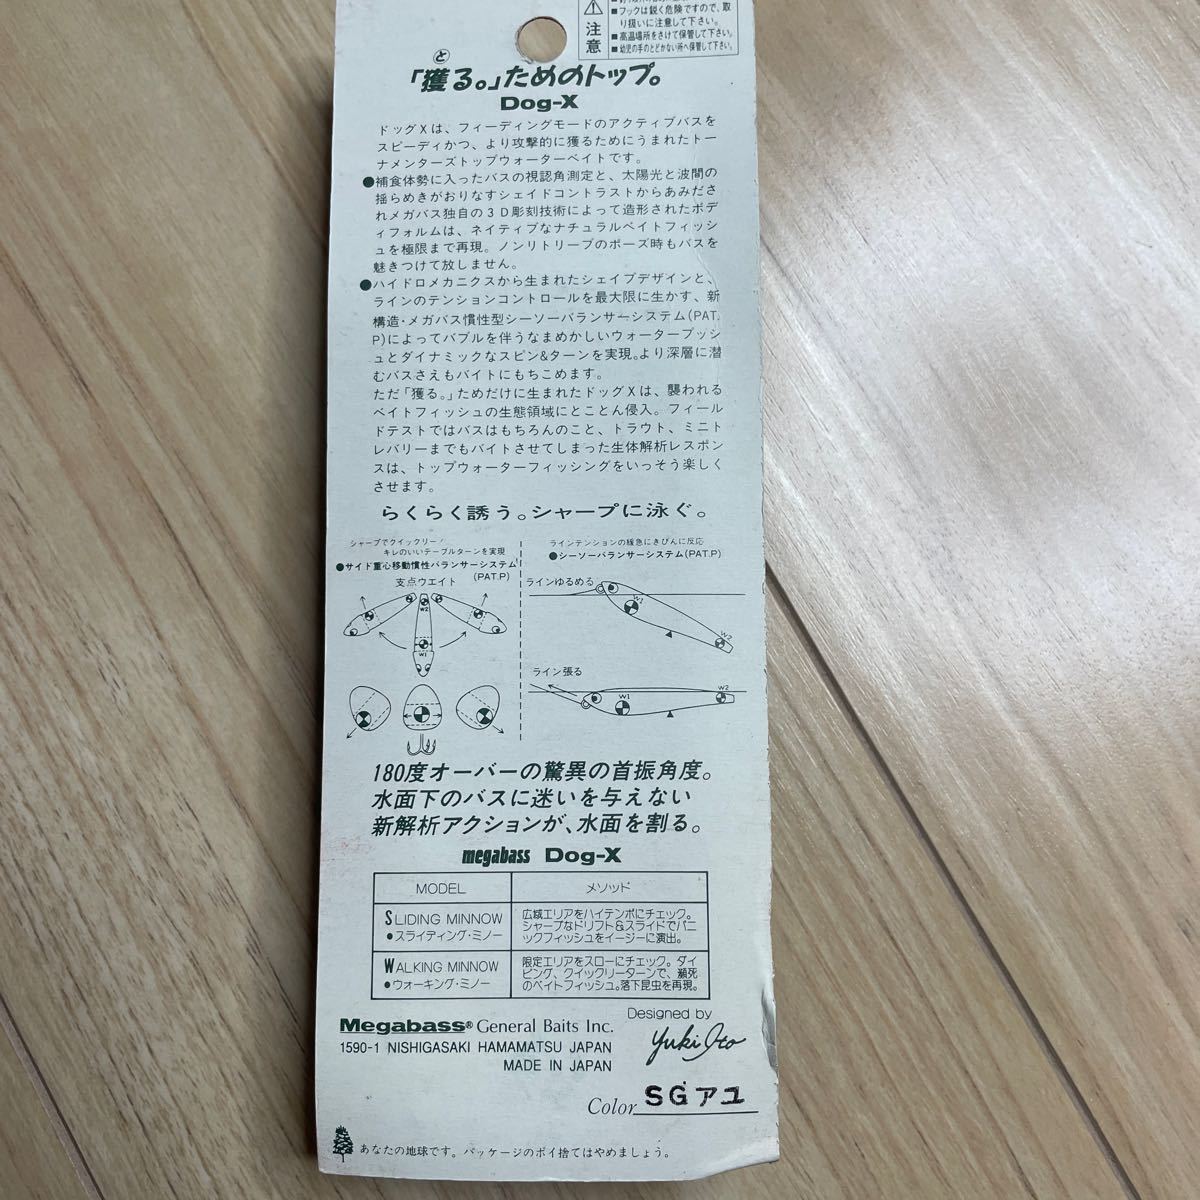 ■フックは鋭く危険ですので、取
り扱いに注意して下さい。
■高温場所をさけて保管して下さい。
■幼児の手のとどかない所へ保管して下さい。
注意
と
「獲る。」ためのトップ。
Dog-X
ドッグXは、フィーディングモードのアクティブバスを
スピーディかつ、より攻撃的に獲るためにうまれたトー
ナメンターズトップウォーターベイトです。
●補食体勢に入ったバスの視認角測定と、太陽光と波間の
揺らめきがおりなすシェイドコントラストからあみださ
れメガバス独自の3D彫刻技術によって造形されたボデ
ィフォルムは、ネイティブなナチュラルベイトフィッシ
ュを極限まで再現。ノンリトリーブのポーズ時もバスを
魅きつけて放しません。
●ハイドロメカニクスから生まれたシェイプデザインと、
ラインのテンションコントロールを最大限に生かす、新
構造・メガバス慣性型シーソーバランサーシステム(PAT.
P)によってバブルを伴うなまめかしいウォータープッシ
ュとダイナミックなスピン&ターンを実現。より深層に潜
むバスさえもバイトにもちこめます。
ただ「獲る。」ためだけに生まれたドッグXは、襲われる
ベイトフィッシュの生態領域にとことん侵入。フィール
ドテストではバスはもちろんのこと、トラウト、ミニト
レバリーまでもバイトさせてしまった生体解析レスポン
スは、トップウォーターフィッシングをいっそう楽しく
させます。
らくらく誘う。シャープに泳ぐ。
シャープでクイックリー!
キレのいいテーブルターンを実現
●サイド重心移動慣性バランサーシステム
(PAT.P)
支点ウエイト
W2
W1
ラインテンションの緩急にきびんに反応
●シーソーバランサーシステム(PAT.P)
ラインゆるめる
W1
W2
ライン張る
W1
W2
180度オーバーの驚異の首振角度。
水面下のバスに迷いを与えない
新解析アクションが、水面を割る。
megabass Dog-X
MODEL メソッド
SLIDING MINNOW
●スライディング・ミノー
広域エリアをハイテンポにチェック。
シャープなドリフト&スライドでパニ
ックフィッシュをイージーに演出。
WALKING MINNOW
●ウォーキング・ミノー
限定エリアをスローにチェック。ダイ
ビング、クイックリーターンで、瀕死
のベイトフィッシュ。落下昆虫を再現。
Megabass® General Baits Inc.
1590-1 NISHIGASAKI HAMAMATSU JAPAN
MADE IN JAPAN
Designed by
Yuki Ito
Color SGアユ
あなたの地球です。パッケージのポイ捨てはやめましょう。